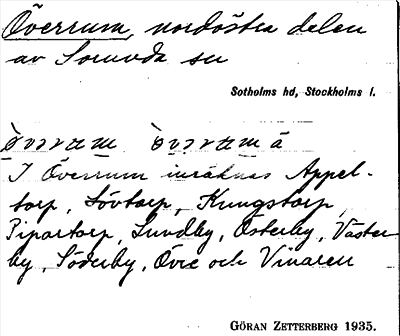 Överrum, nordöstra delen
av Sorunda sn
Sotholms hd, Stockholms l.
I Överrum inräknas Appel-
torp, Lövtorp, Kungstorp,
Pipartorp, Lundby, Österby, Väster
by, Söderby, Övre och Vinaren
GÖRAN ZETTERBERG 1935.